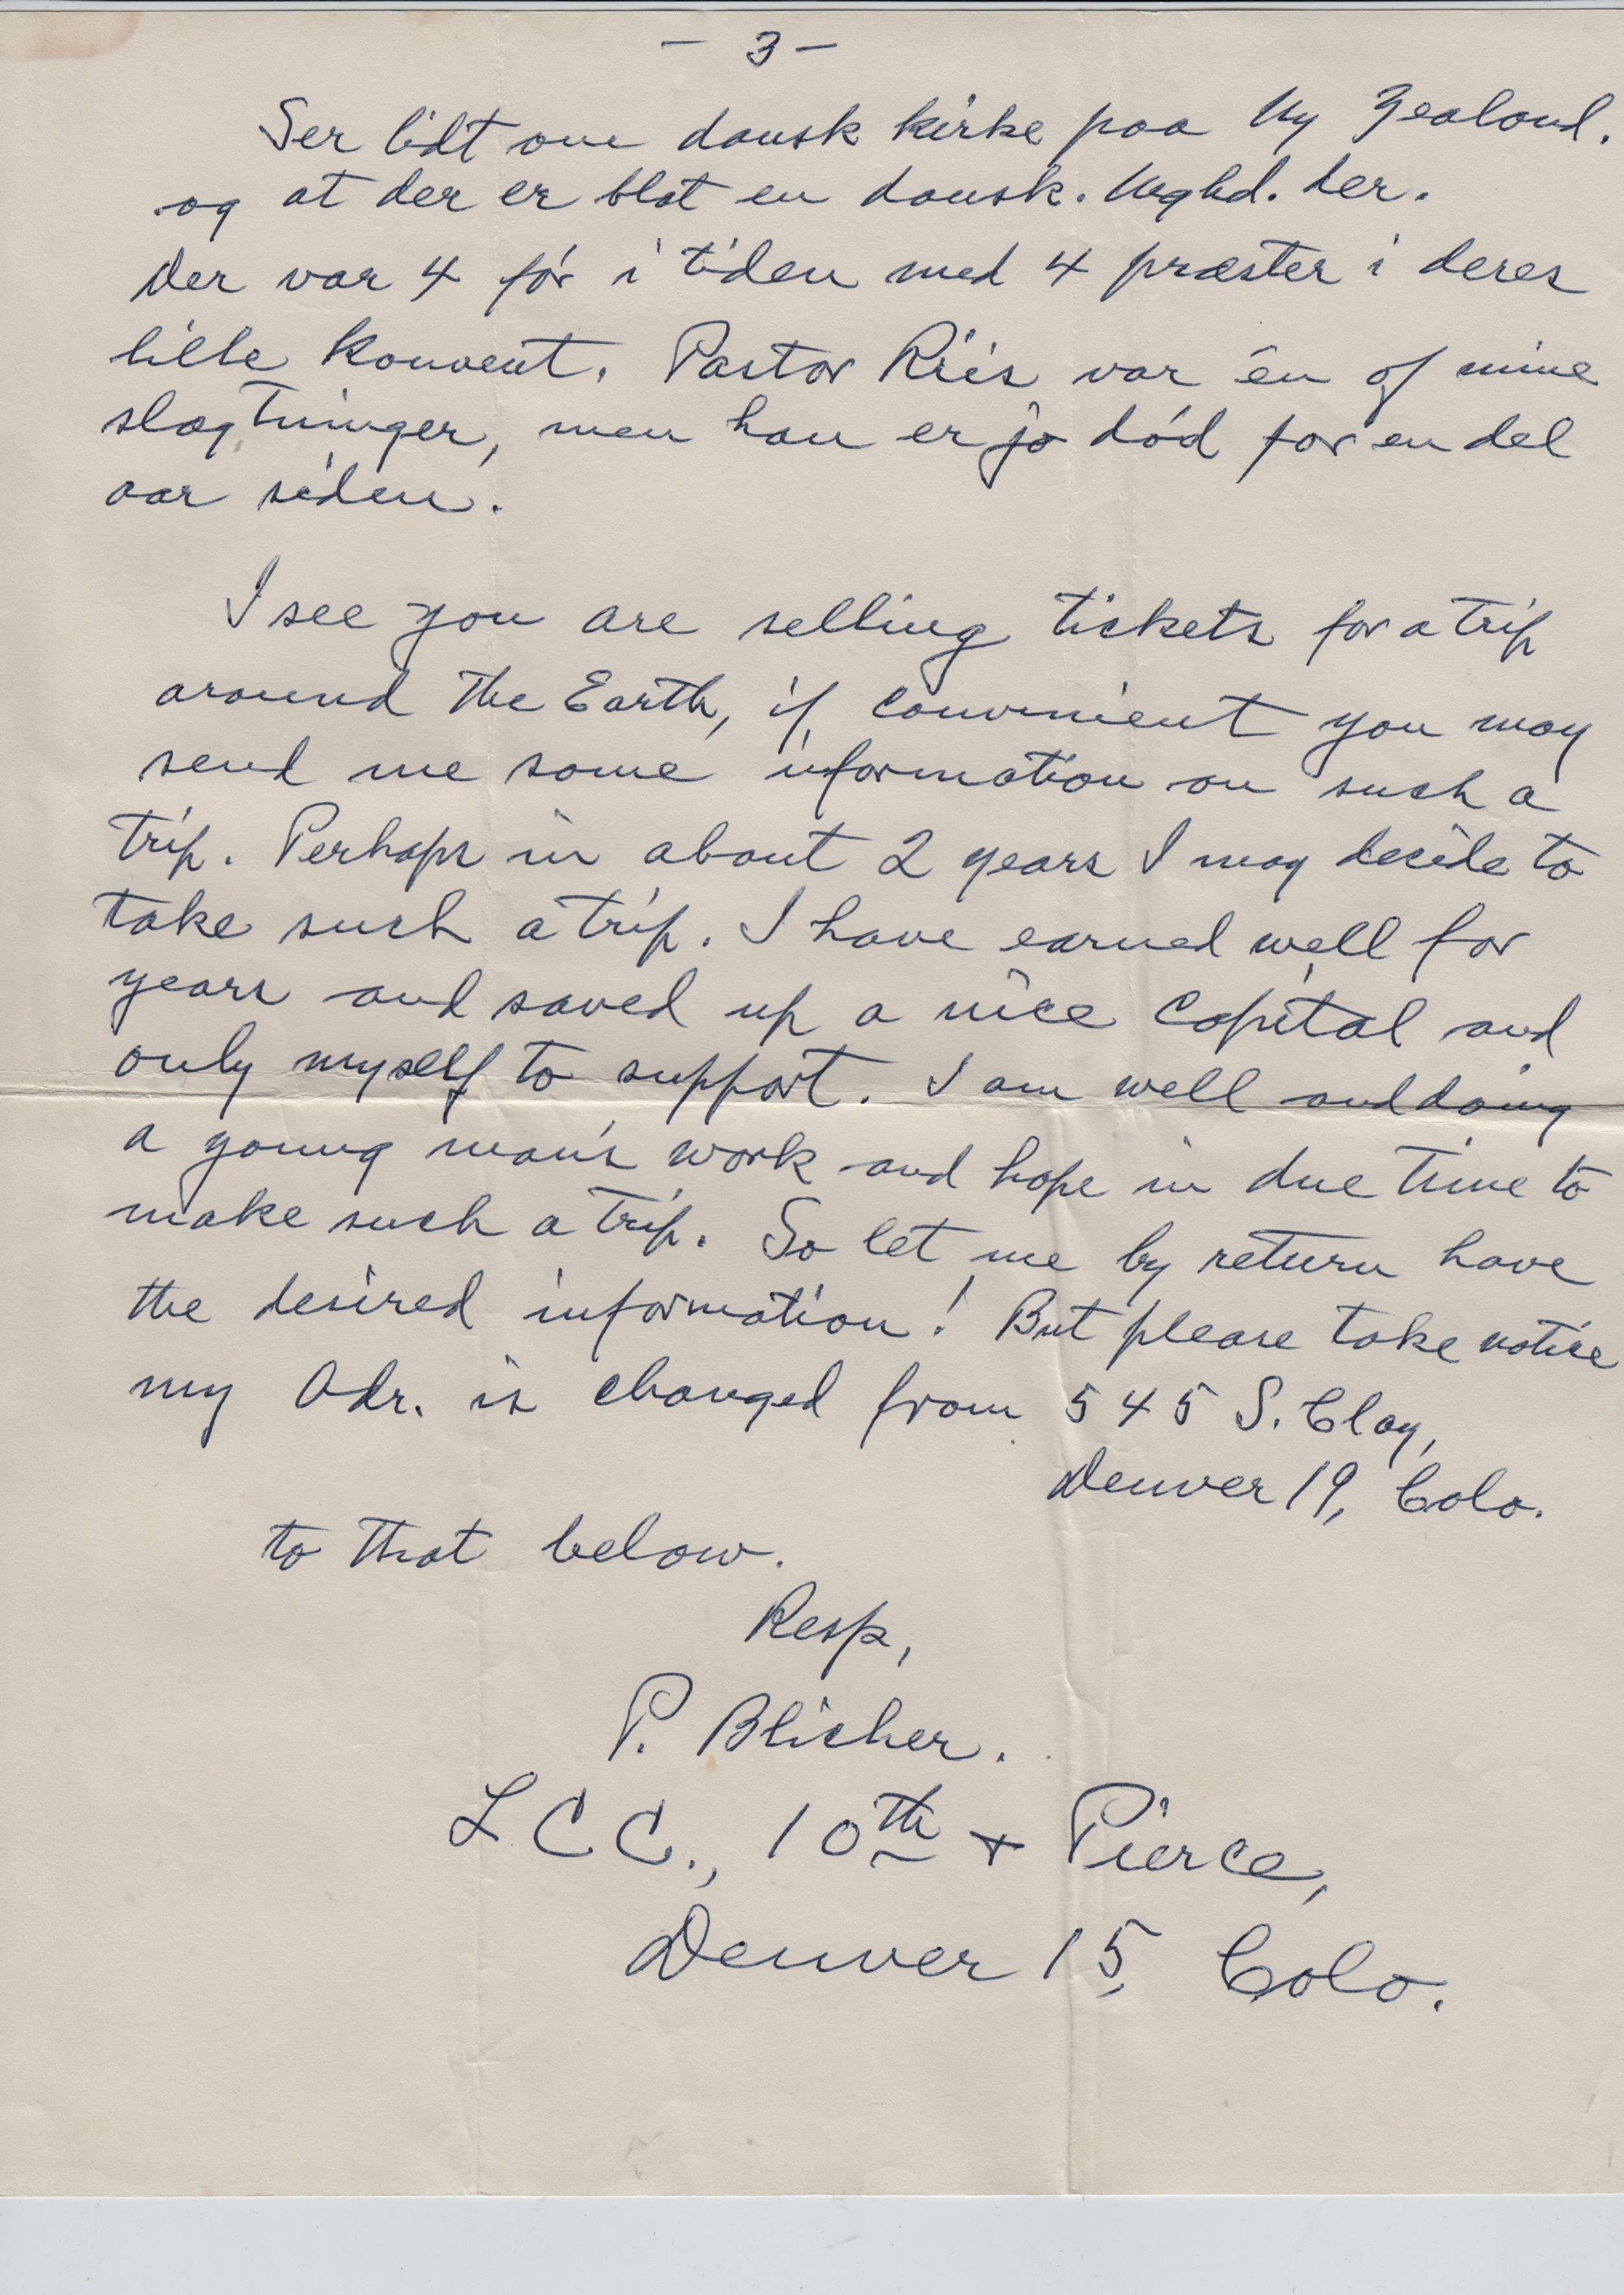 - 3 -
Ser lidt om dansk kirke paa Ny Zealand.
og at der er blot en dansk. Mghd. der.
Der var 4 før i tiden med 4 præster i deres
lille Konvent. Pastor Riis var én af mine
slægtninger, men han er jo død for en del
aar siden.
I see you are selling tickets for a trip
around the Earth, if convenient you may
send me some information on such a
trip. Perhaps in about 2 years I may decide to
take such a trip. I have earned well for
years and saved up a nice Capital and
only myself to support. I am well and doing
a young man's work and hope in due time to
make such a trip. So let me by return have
the desired information! But please take notice
my Adr. is changed from 545 S. Clay,
Denver 19, Colo.
to that below.
Resp,
P. Blicher.
L C C., 10th + Pierce,
Denver 15, Colo.